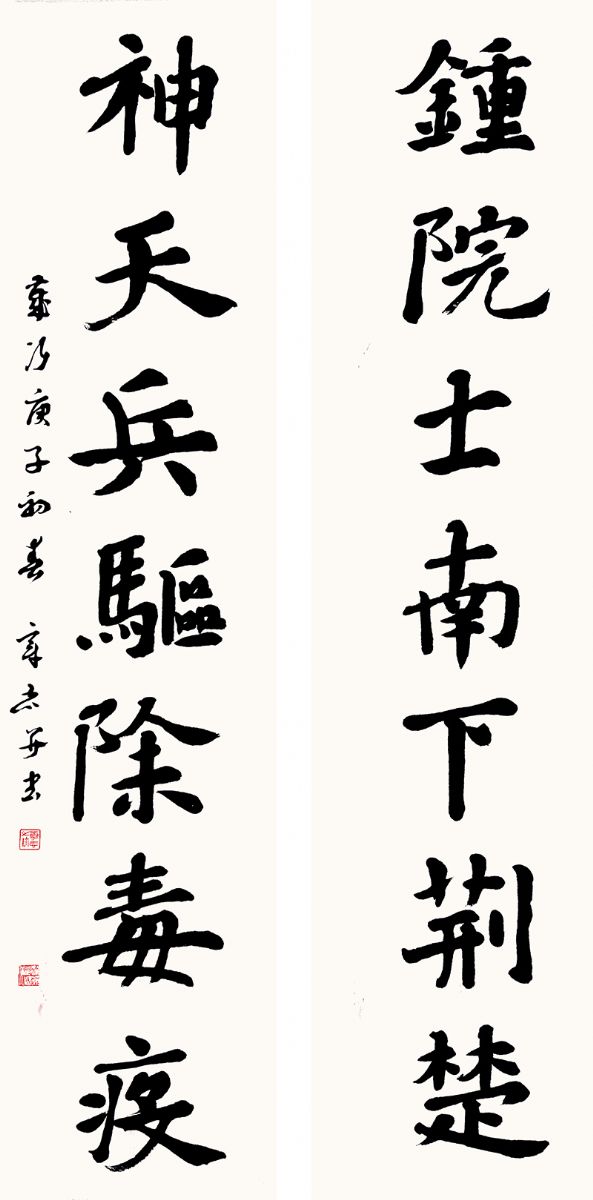 鍾院士南下荊楚
神天兵驅除毒疫
歲次庚子初春 章 書